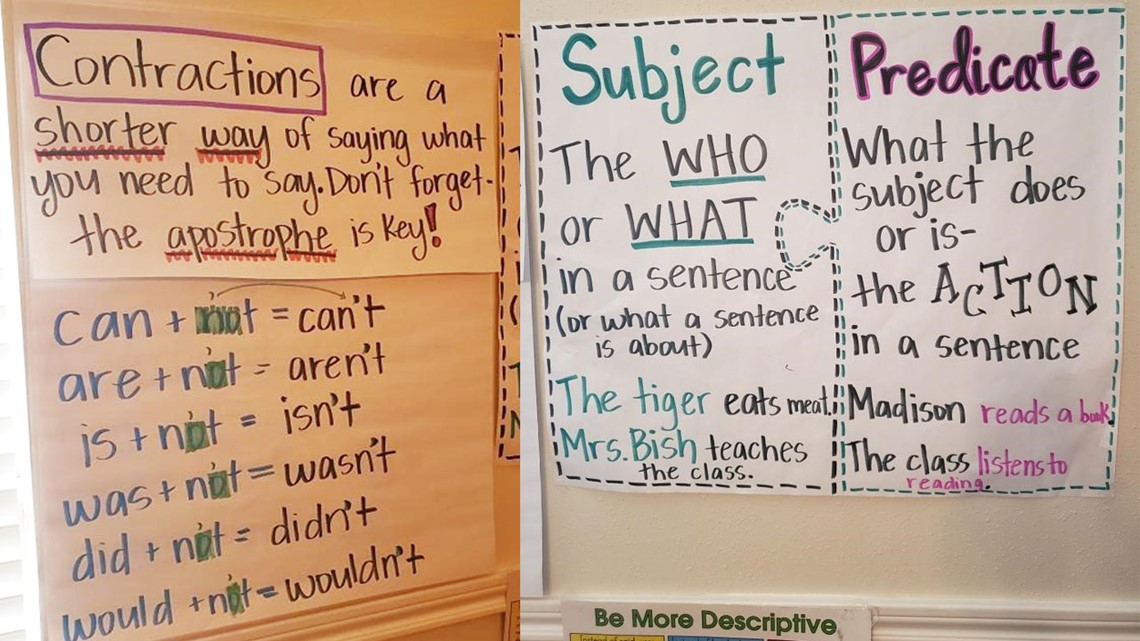 Contractions are a
shorter way of saying what
you need to say. Don't forget-
the apostrophe is key!
can + not = can't
are + not = aren't
is + not = isn't
was + not = wasn't
did + not = didn't
would + not = wouldn't
Subject
The WHO
or WHAT
in a sentence
(or what a sentence
is about)
The tiger eats meat.
Mrs. Bish teaches
the class.
Predicate
What the
subject does
or is-
the ACTION
in a sentence
Madison reads a book
The class listens to
reading.
Be More Descriptive